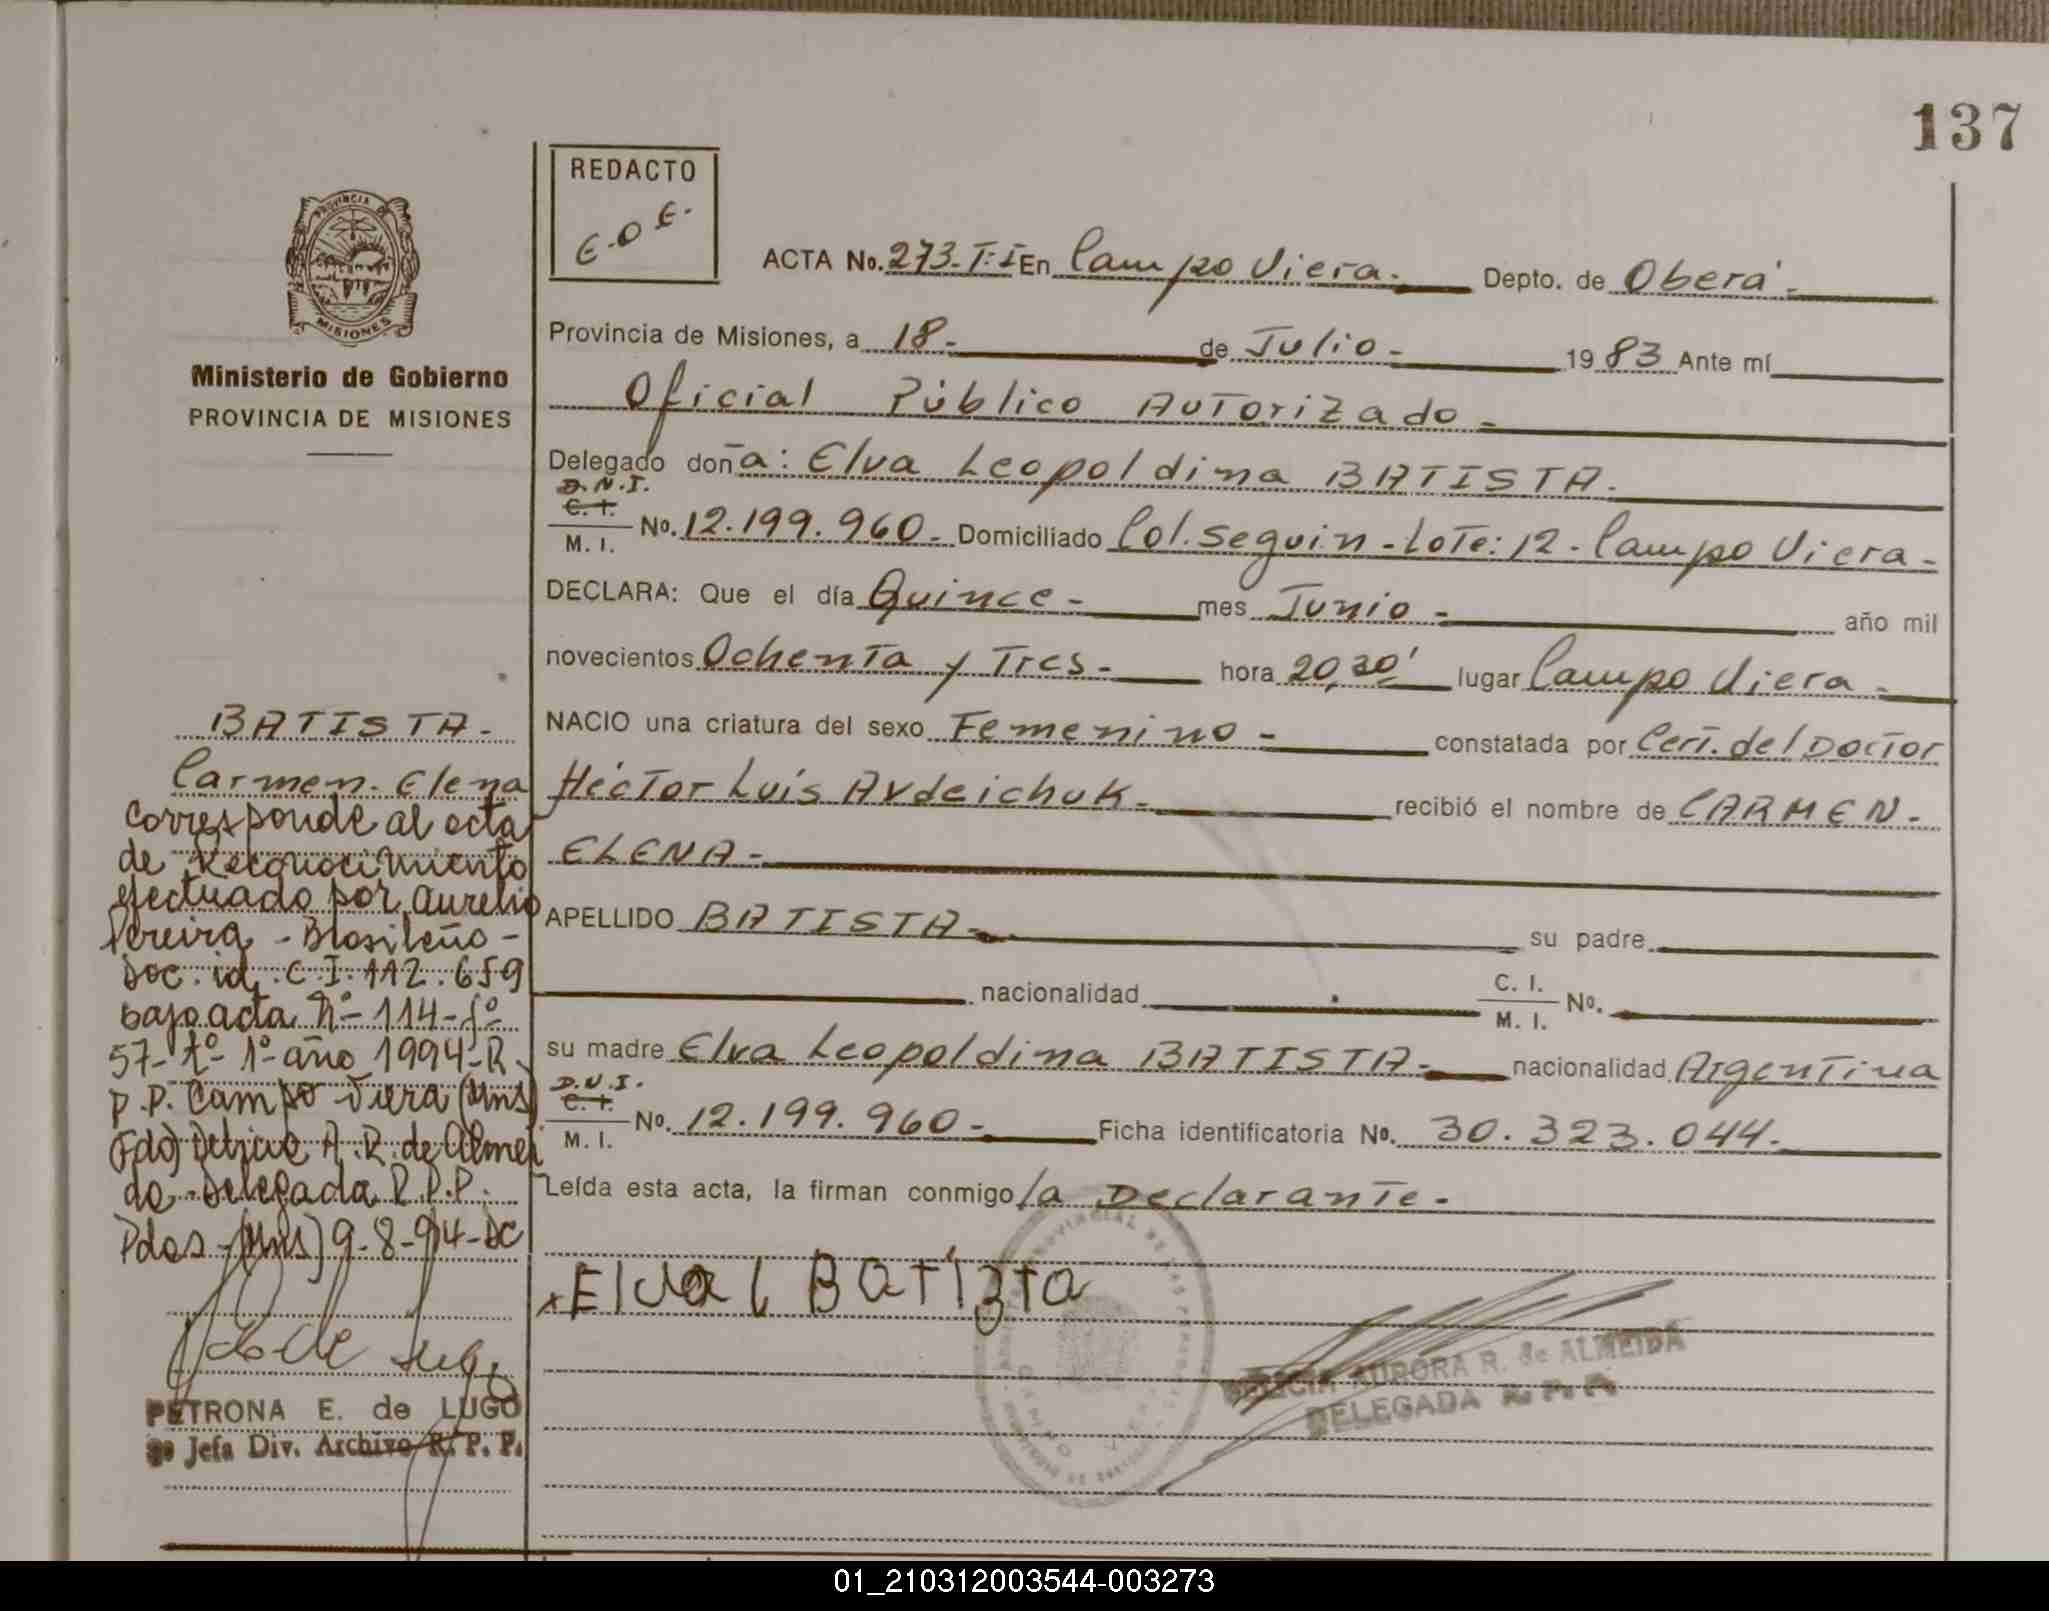 137
REDACTO
E.O.E.
PROVINCIA DE
MISIONES
Ministerio de Gobierno
PROVINCIA DE MISIONES
ACTA No. 273-T:I En Campo Viera.- Depto. de Oberá.-
Provincia de Misiones, a 18.- de Julio.- 1983 Ante mí
Oficial Público Autorizado.-
Delegado doña: Elva Leopoldina BATISTA.
D.N.I.
C. I.
M. I.
No. 12.199.960.- Domiciliado Col. Seguin - Lote: 12 - Campo Viera.-
DECLARA: Que el día Quince.- mes Junio.- año mil
novecientos Ochenta y Tres.- hora 20,30' lugar Campo Viera.-
NACIO una criatura del sexo Femenino.- constatada por Cert. del Doctor
Héctor Luis Avdeichuk.- recibió el nombre de CARMEN.
ELENA.-
APELLIDO BATISTA.- su padre
nacionalidad C. I. M. I. No.
su madre Elva Leopoldina BATISTA.- nacionalidad Argentina
D.N.I.
C. I.
M. I.
No. 12.199.960.- Ficha identificatoria No. 30.323.044.-
Leída esta acta, la firman conmigo la Declarante.-
x Elva L Batista
FELICIA AURORA R. de ALMEIDA
DELEGADA R. P. P.
BATISTA.-
Carmen. Elena
Corresponde al acta
de Reconocimiento
efectuado por Aurelio
Pereira - Brasileño -
Doc. id. C.I. 112.659
bajo acta Nº 114-fº
57-tº-1º-año 1994-R.
P.P. Campo Viera (Mns)
Fdo) A.R. de Almei
da-Delegada R.P.P.
Pdas-(Mns) 9-8-94-DC
PETRONA E. de LUGO
Jefa Div. Archivo R. P. P.
01_210312003544-003273